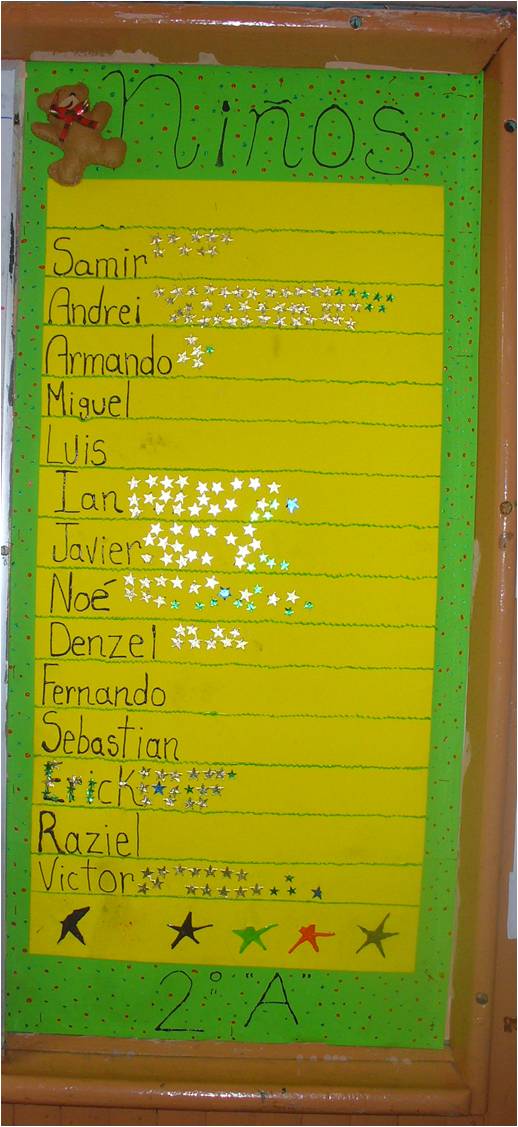 Niños
Samir
Andrei
Armando
Miguel
Luis
Ian
Javier
Noé
Denzel
Fernando
Sebastian
Erick
Raziel
Victor
2° "A"